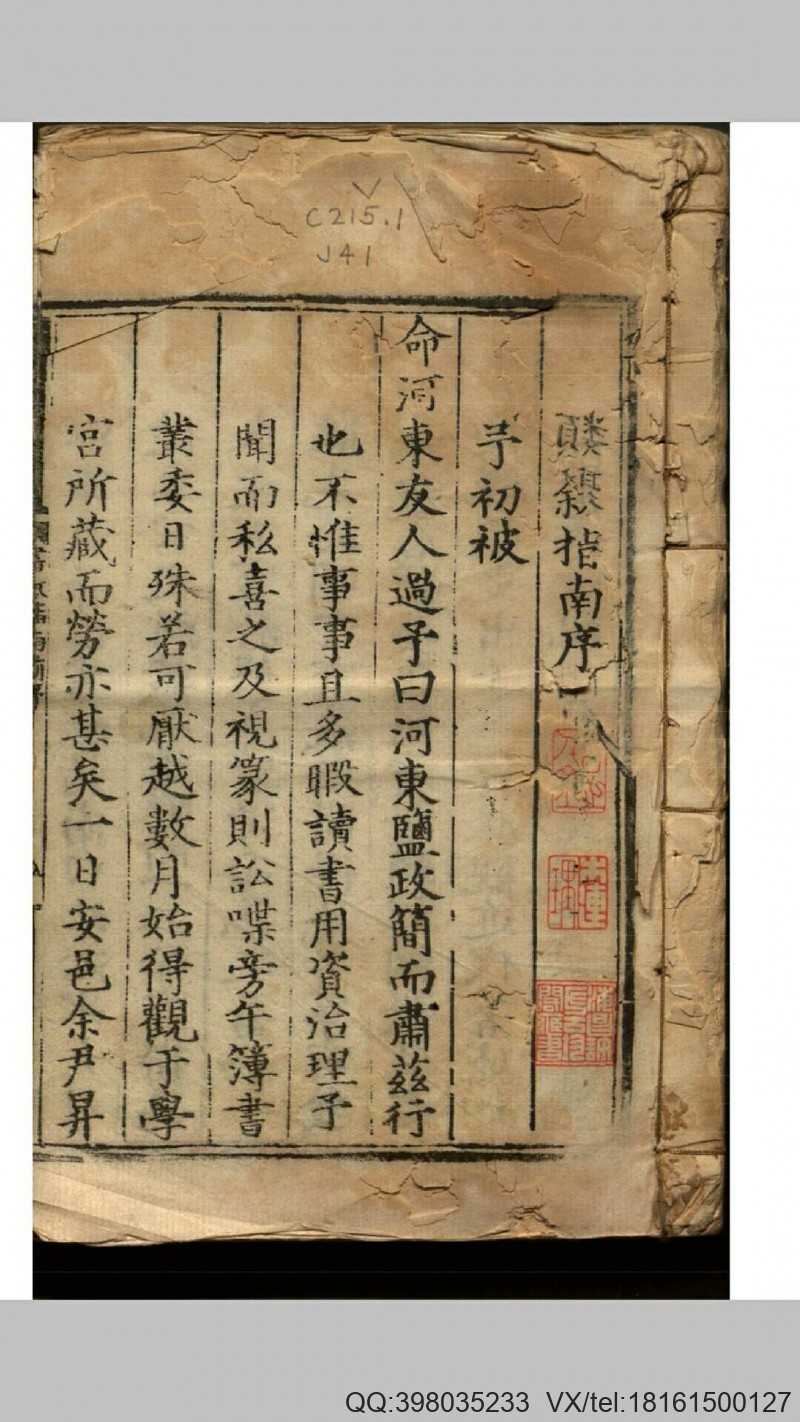 C215.1
J41
指南序
予初被
命河東友人過予曰河東鹽政簡而肅茲行
也不惟事事且多暇讀書用資治理予
聞而私喜之及視篆則訟喋旁午簿書
叢委日殊若可厭越數月始得觀于學
宮所藏而勞亦甚矣一日安邑余尹昇
QQ:398035233 VX/tel:18161500127